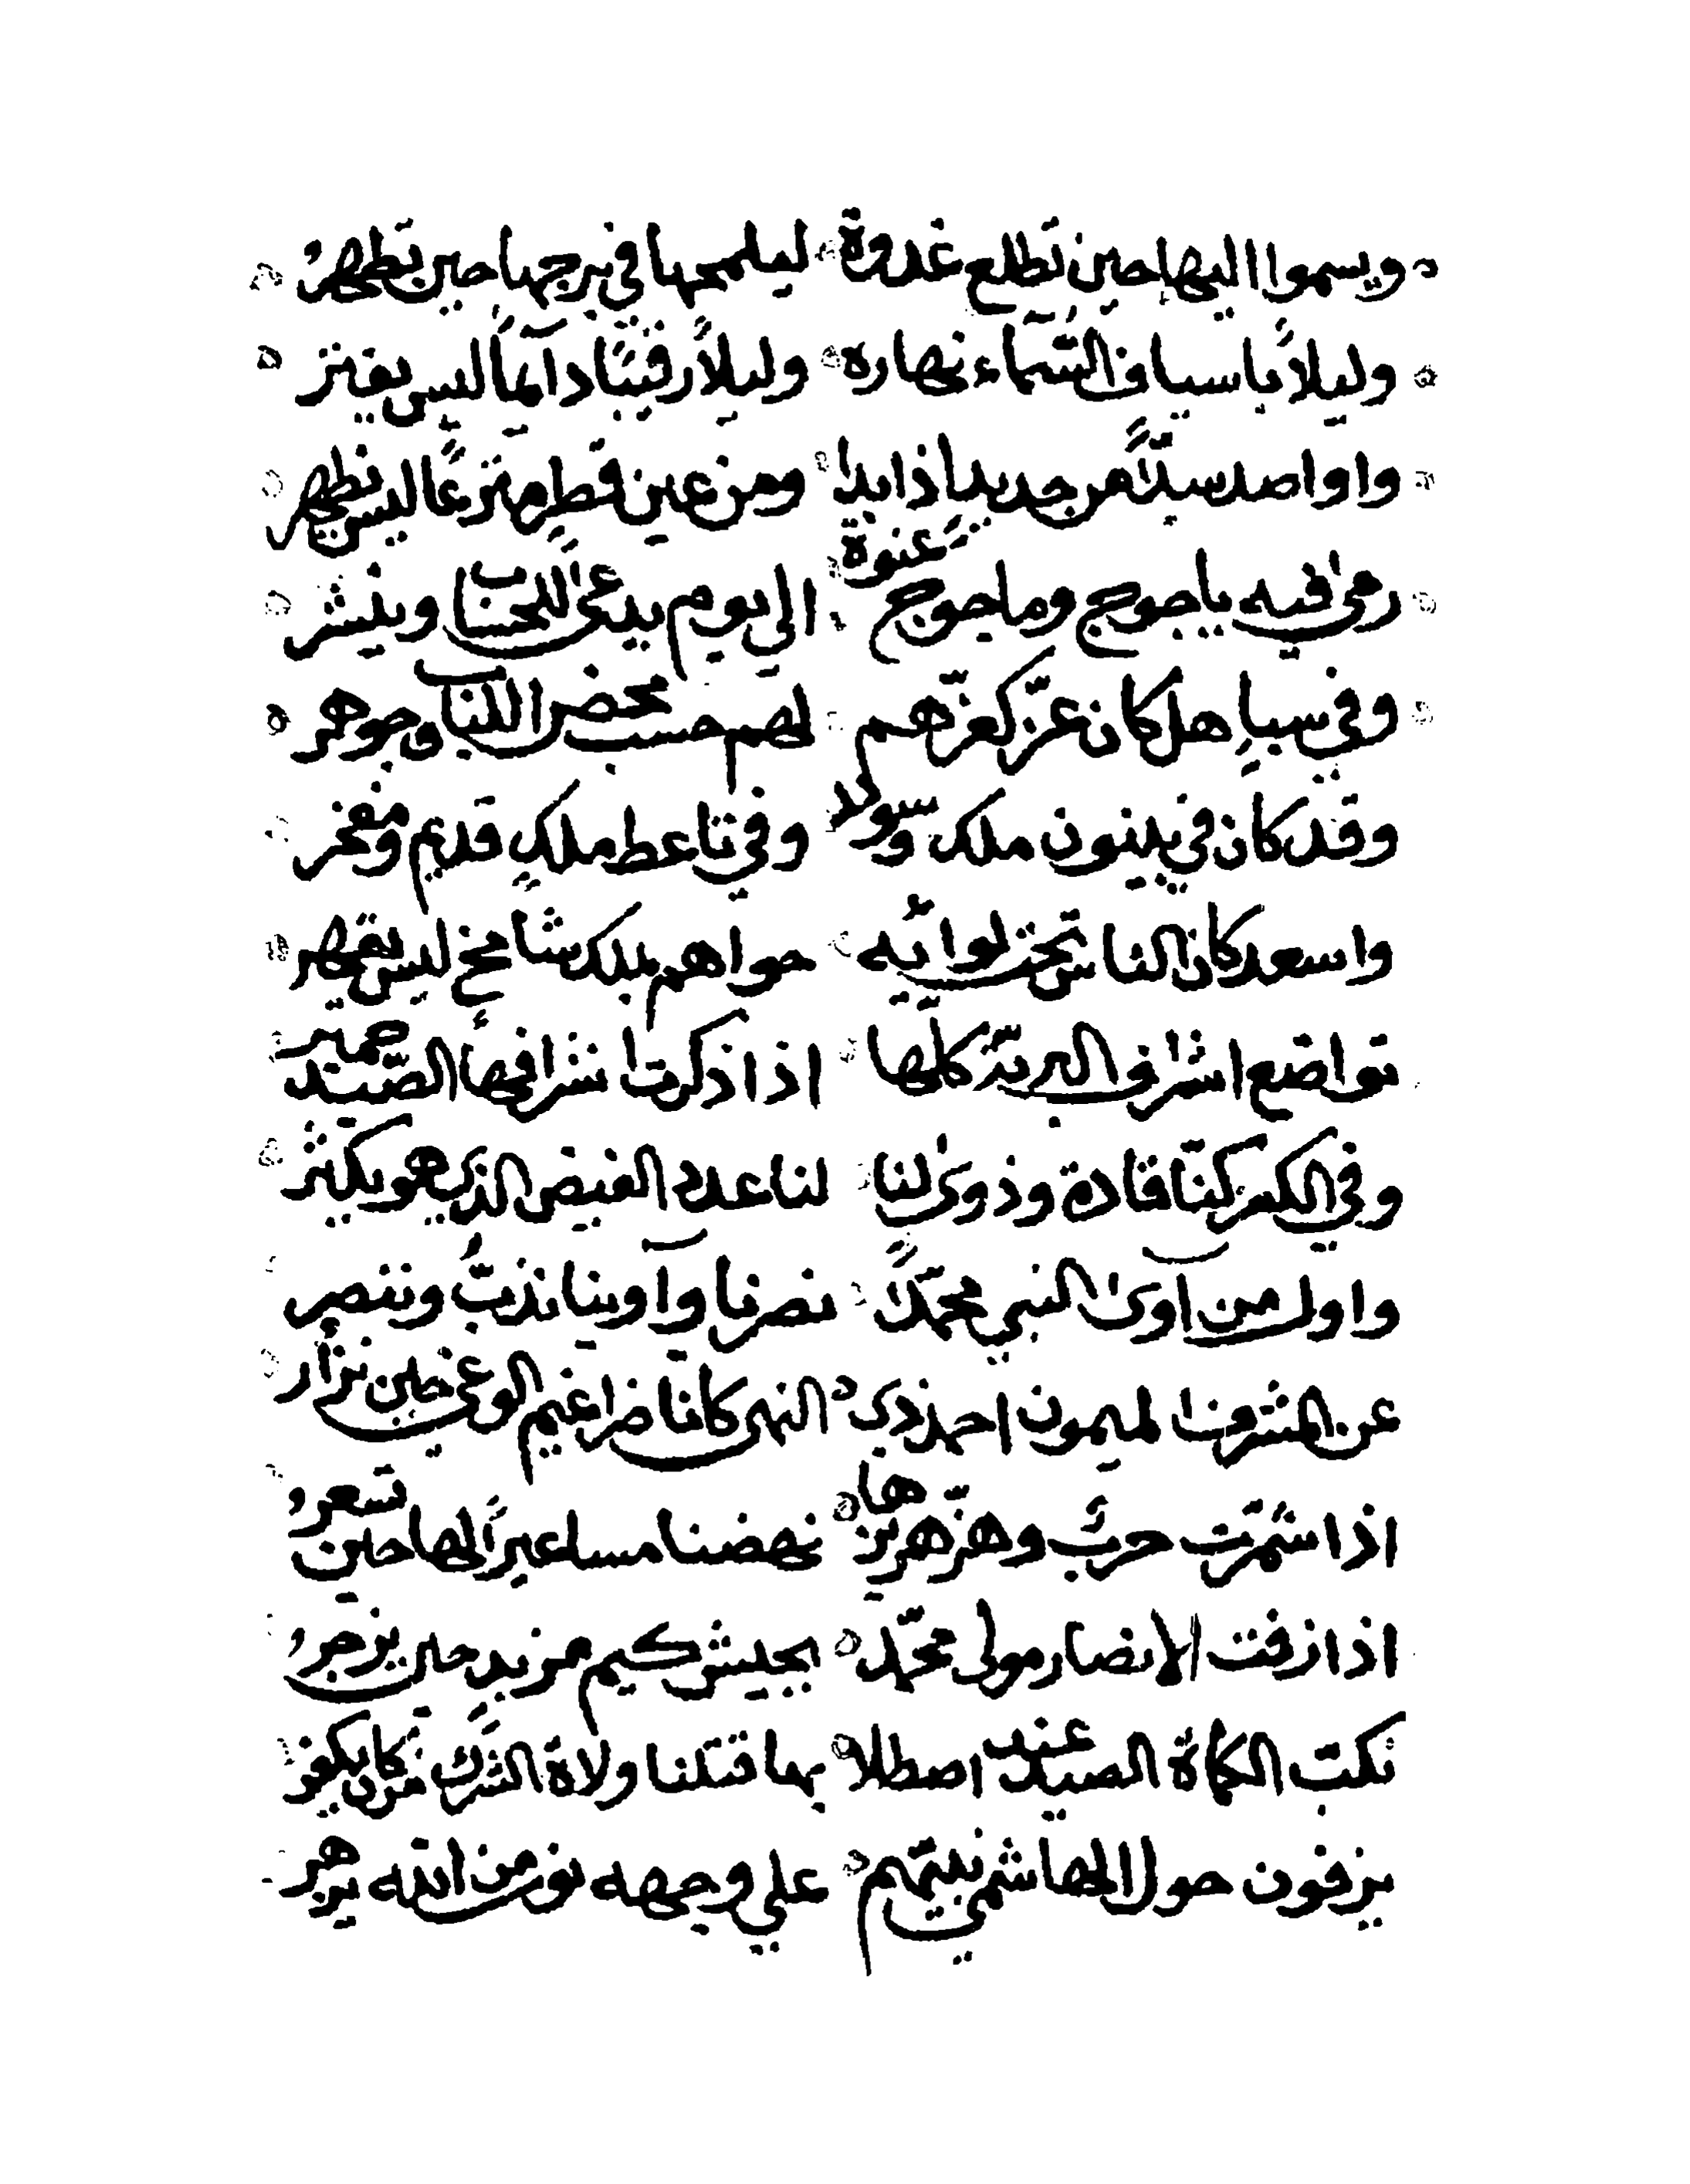 ويسموا اليها حين تطلع غدوة ليلمحها في برجها حين تظهر
وليلاً باسباف السماء نهاره وليلاً رقيبًا دآيمًا ليس يفتر
واواصد سدًّا من حديد اذابه ومن عين قطرٍ مترعًا ليس يظهر
رمى فيه ياجوج وماجوج عنوة الى يوم يدعى للحساب وينشر
وفي سباٍ هل كان عز كعزهم لهم حسب محض اللباب وجوهر
وقد كان في بينون ملك وسودد وفي ناعط ملكٍ قديم ومفخر
واسعد كان الناس تحت لوائه حواهم بملك شامخٍ ليس يقهر
تواضع اشراف البرية كلها اذا ذكرت اشرافها الصيد حمير
وفي الكفر كنا قادة وذوى لنا لنا عدد الفيض الذي هو يكثر
واول من آوى النبي محمدًا نصرنا وآوينا نذبُّ وننصر
عن المشرف الميمون احمد ذي النهى كانا ضراغيم الوغى حين نزأر
اذا شمرت حربٌ وهز هزيزها نهضنا مساعيرًا لها حين تسعر
اذا زفت الانصار مولى محمد بجيش كيم مزبدٍ حين يزخر
نكب الكماة الصيد عند اصطلا بها قتلنا ولاة الشرك من كان يكفر
يزفون حول الهاشمي نبيهم علي وجهه نور من الله يزهر